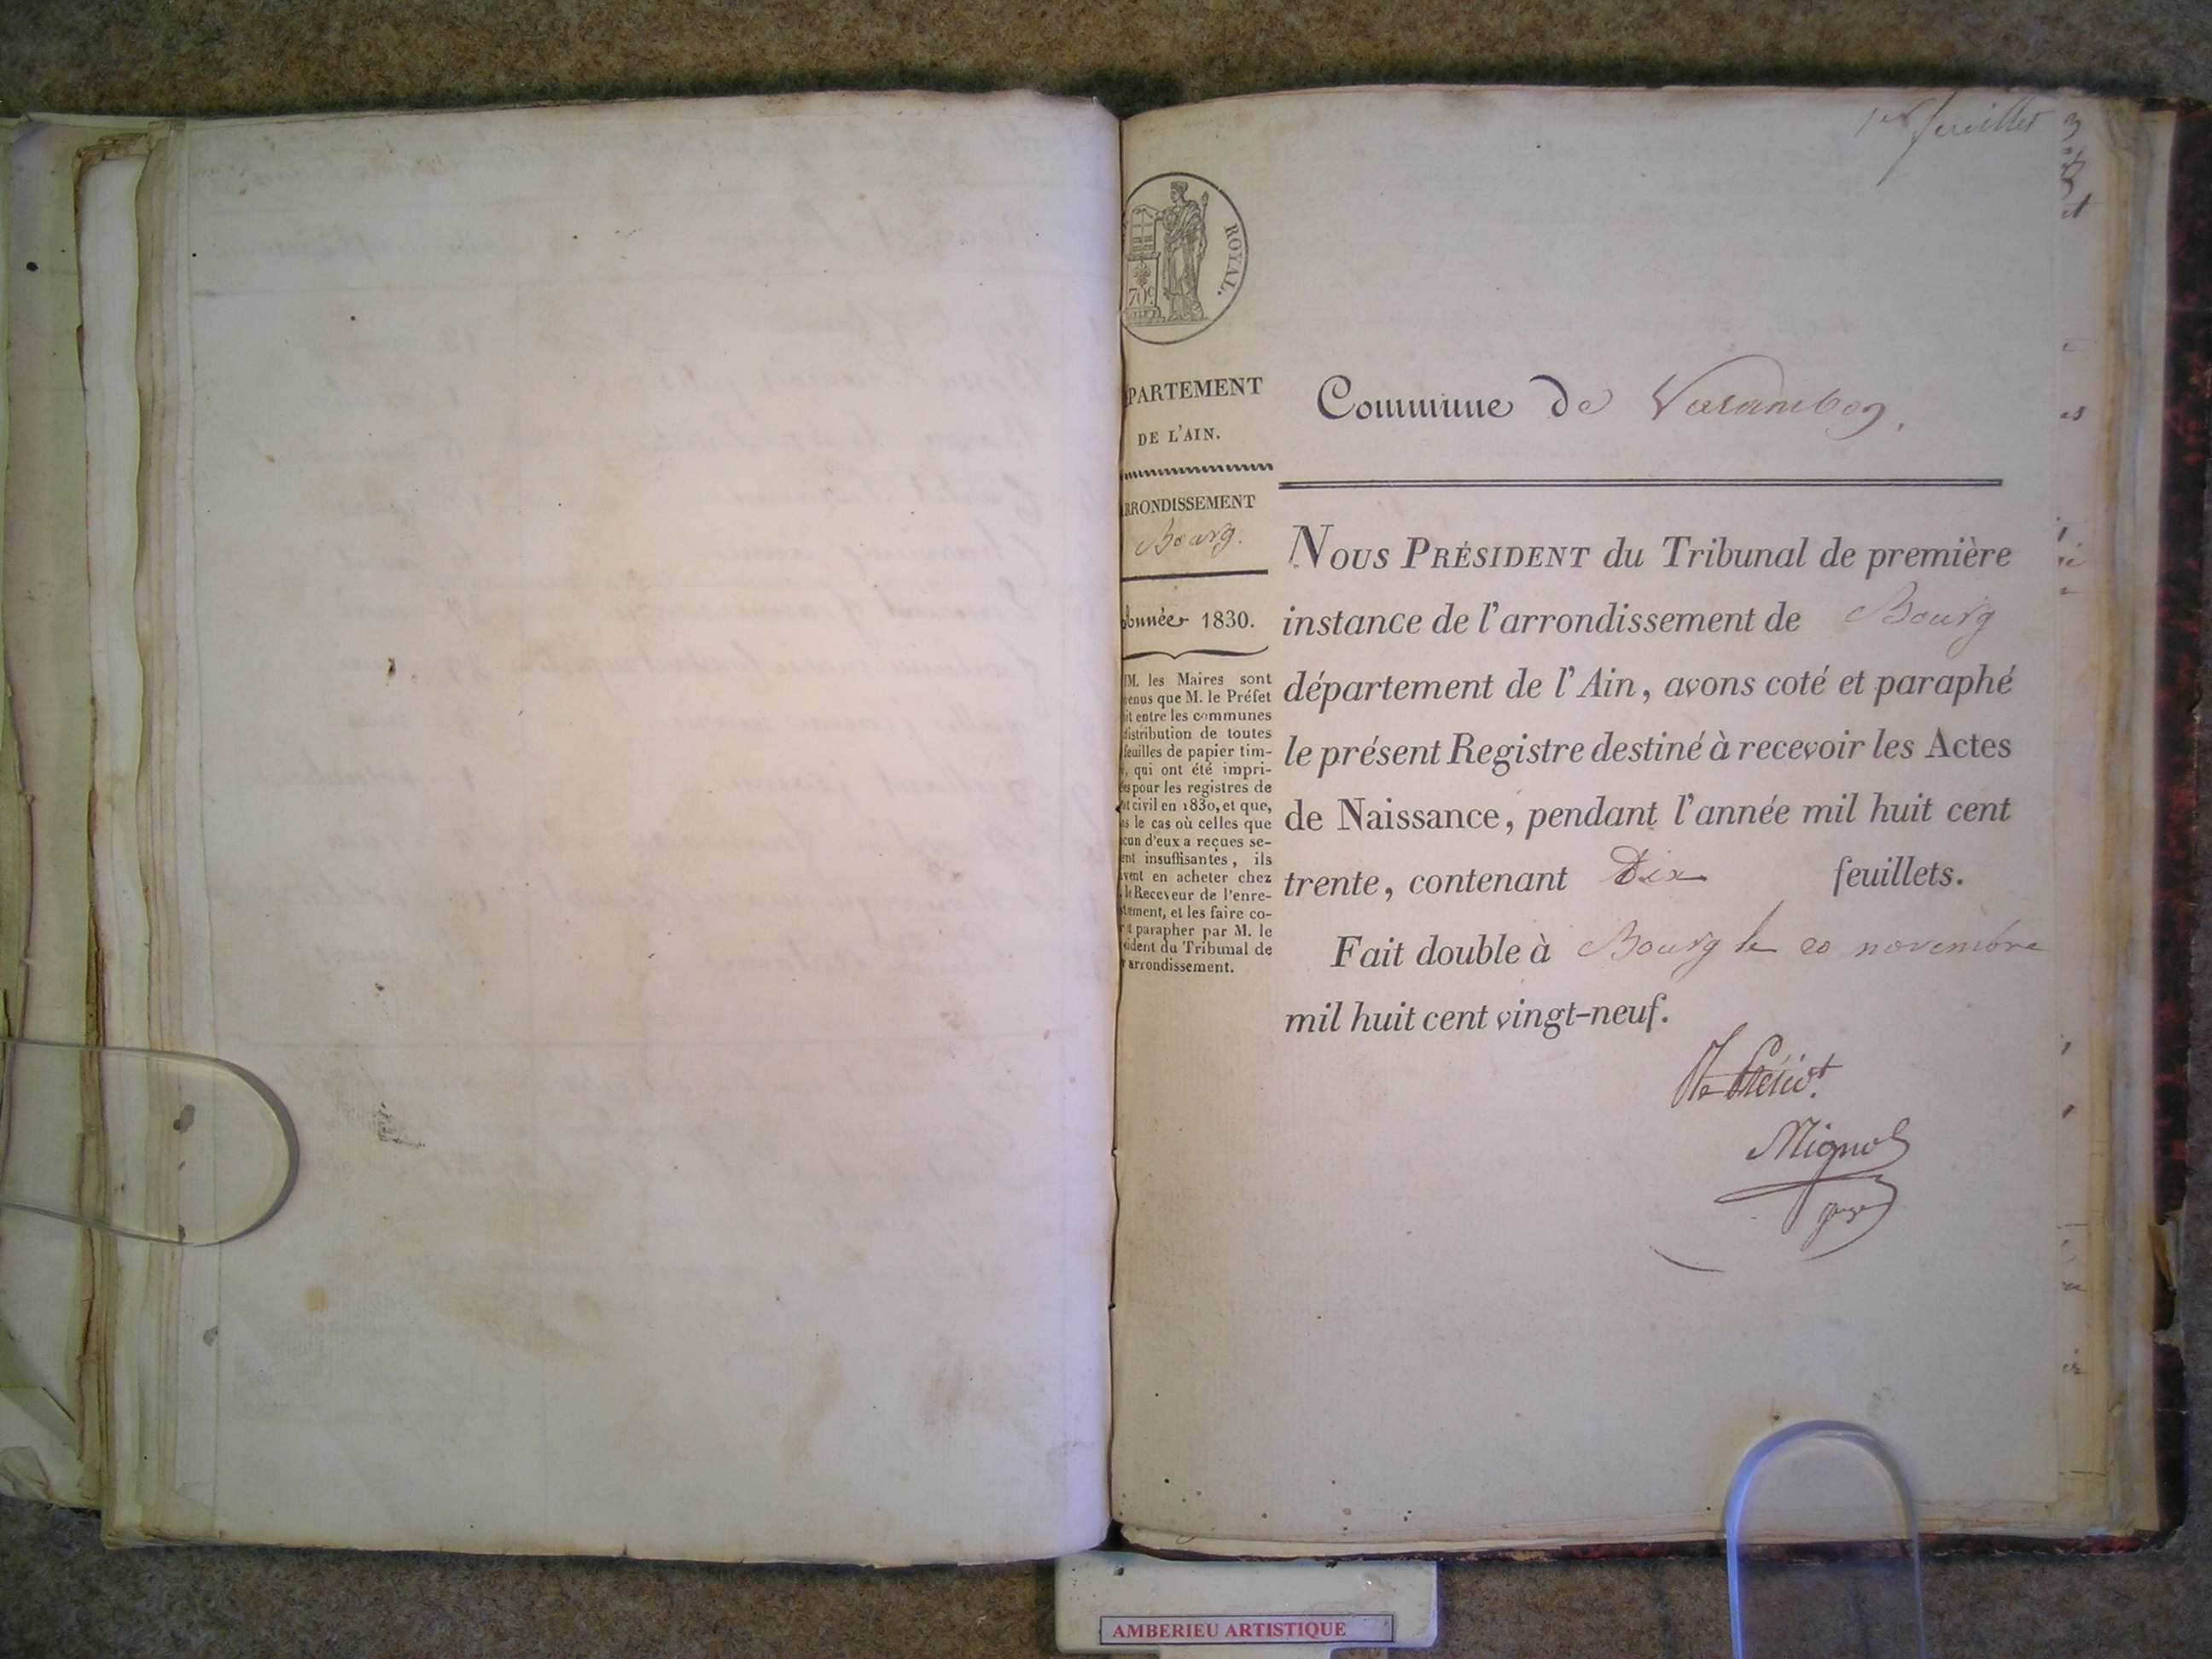 1er feuillet
ROYAL.
70c
PARTEMENT
DE L'AIN.
RRONDISSEMENT
Bourg.
Année 1830.
M. les Maires sont
enus que M. le Préfet
it entre les communes
distribution de toutes
feuilles de papier tim-
, qui ont été impri-
es pour les registres de
t civil en 1830, et que,
s le cas où celles que
cun d'eux a reçues se-
ent insuffisantes, ils
vent en acheter chez
le Receveur de l'enre-
trement, et les faire co-
t parapher par M. le
sident du Tribunal de
r arrondissement.
Commune de Varambon.
NOUS PRÉSIDENT du Tribunal de première
instance de l'arrondissement de Bourg
département de l'Ain, avons coté et paraphé
le présent Registre destiné à recevoir les Actes
de Naissance, pendant l'année mil huit cent
trente, contenant Dix feuillets.
Fait double à Bourg le 20 novembre
mil huit cent vingt-neuf.
Mignot
juge
AMBERIEU ARTISTIQUE